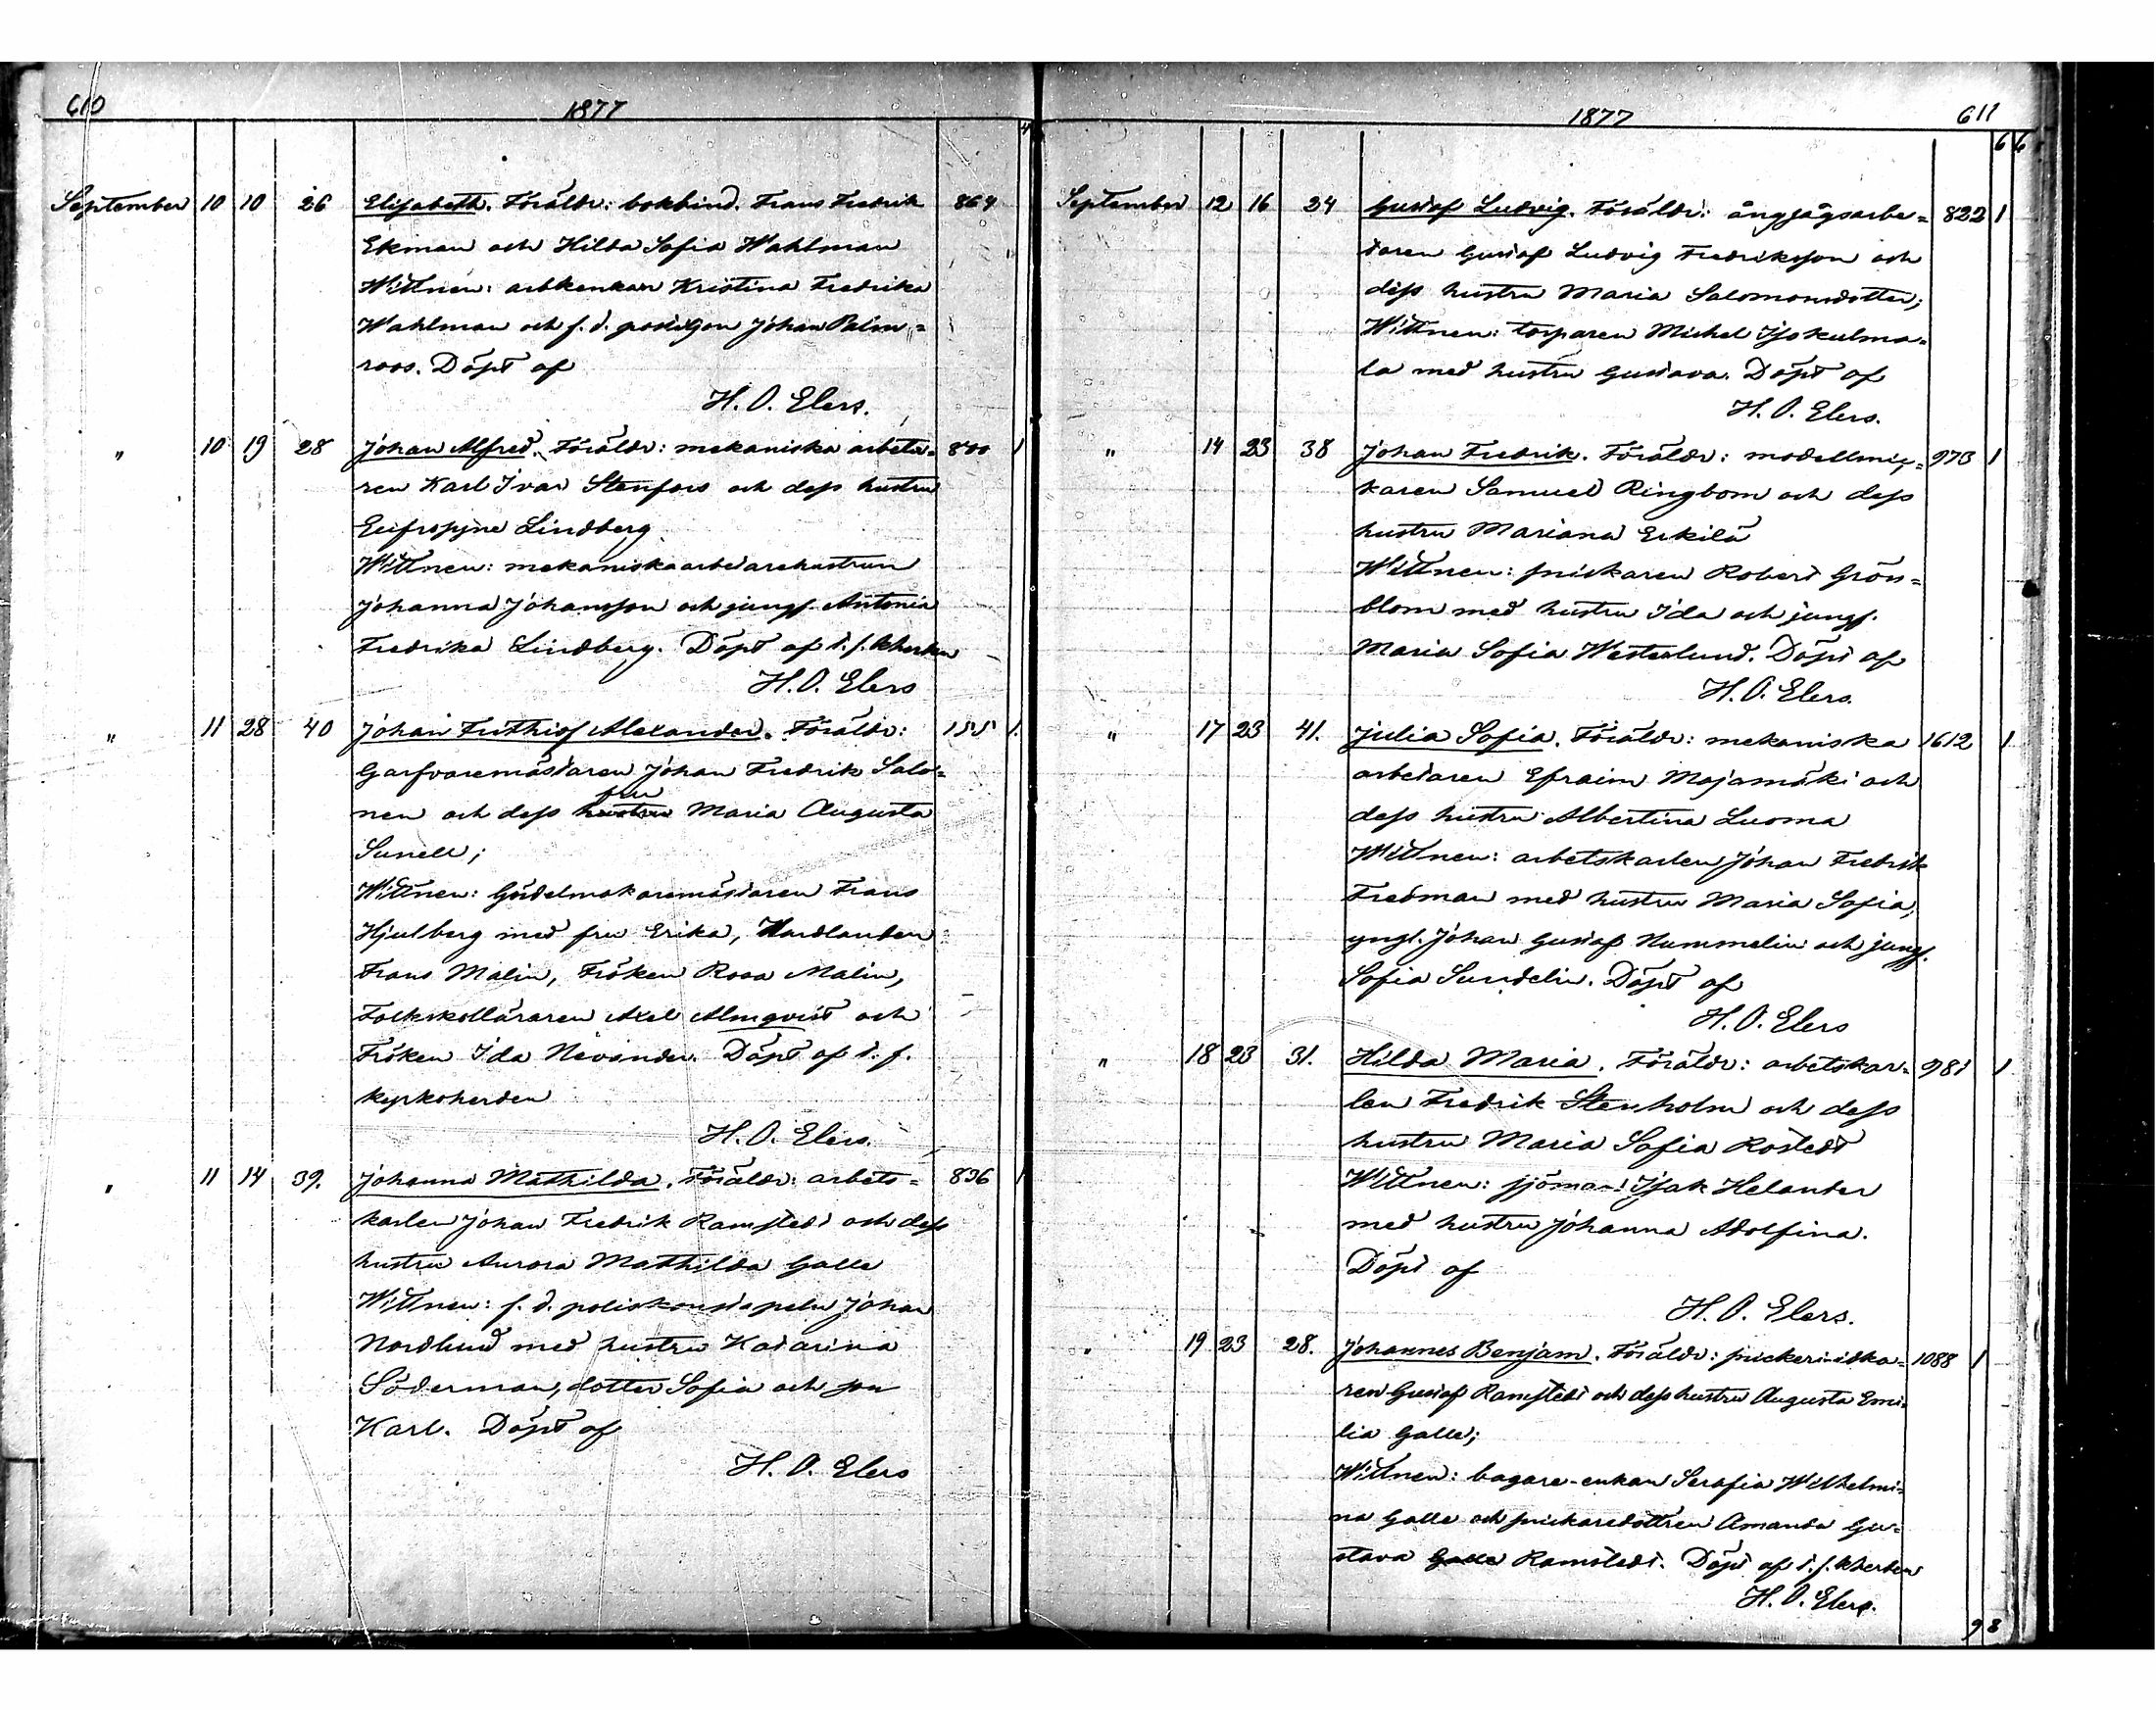 610
1877
4
September 10 10 26 Elisabeth. Föräldr: bokbind. Frans Fredrik 864
Ekman och Hilda Sofia Wahlman
Wittnen: arbkenkan Kristina Fredrika
Wahlman och f. d. postiljon Johan Palm=
roos. Döpt af
H. O. Elers.
" 10 19 28 Johan Alfred. Föräldr: mekaniska arbeta= 800 1
ren Karl Ivar Stenfors och dess hustru
Eufrosyne Lindberg
Wittnen: mekaniskaarbetarehustrun
Johanna Johansson och jungf. Antonia
Fredrika Lindberg. Döpt af t. f. kherden
H. O. Elers
" 11 28 40 Johan Frithiof Alexander. Föräldr: 155 1
Garfvaremästaren Johan Fredrik Salo=
fru
nen och dess hustru Maria Augusta
Sunell;
Wittnen: Gördelmakaremästaren Frans
Hjulberg med fru Erika, Handlanden
Frans Malin, Fröken Rosa Malin,
Folkskolläraren Axel Almqvist och
Fröken Ida Nevander. Döpt af t. f.
kyrkoherden
H. O. Elers.
" 11 14 39. Johanna Mathilda. Föräldr: arbets= 836 1
karlen Johan Fredrik Ramstedt och dess
hustru Aurora Mathilda Galle
Wittnen: f. d. poliskonstapeln Johan
Nordlund med hustru Katarina
Söderman, dotter Sofia och son
Karl. Döpt af
H. O. Elers
1877
611
6 6
September 12 16 24 Gustaf Ludvig. Föräldr: ångsågsarbe= 822 1
taren Gustaf Ludvig Fredriksson och
dess hustru Maria Salomonsdotter;
Wittnen: torparen Michel Isokulma=
la med hustru Gustava. Döpt af
H. O. Elers.
" 14 23 38 Johan Fredrik. Föräldr: modellsnic= 973 1
karen Samuel Ringbom och dess
hustru Mariana Erkilä
Wittnen: snickaren Robert Grön=
blom med hustru Ida och jungf.
Maria Sofia Westerlund. Döpt af
H. O. Elers.
" 17 23 41. Julia Sofia. Föräldr: mekaniska 1612 1
arbetaren Efraim Majamäki och
dess hustru Albertina Luoma
Wittnen: arbetskarlen Johan Fredrik
Fredman med hustru Maria Sofia,
yngl. Johan Gustaf Nummelin och jungf.
Sofia Sundelin. Döpt af
H. O. Elers
" 18 23 31. Hilda Maria. Föräldr: arbetskar= 981 1
len Fredrik Stenholm och dess
hustru Maria Sofia Rostedt
Wittnen: sjöman Isak Helander
med hustru Johanna Adolfina.
Döpt af
H. O. Elers.
" 19 23 28. Johannes Benjam. Föräldr: snickeriidka= 1088 1
ren Gustaf Ramstedt och dess hustru Augusta Emi=
lia Galle;
Wittnen: bagare-enkan Serafia Wilhelmi=
na Galle och snickaredottren Amanda Gu=
stava Galle Ramstedt. Döpt af t. f. kherden
H. O. Elers.
9 8